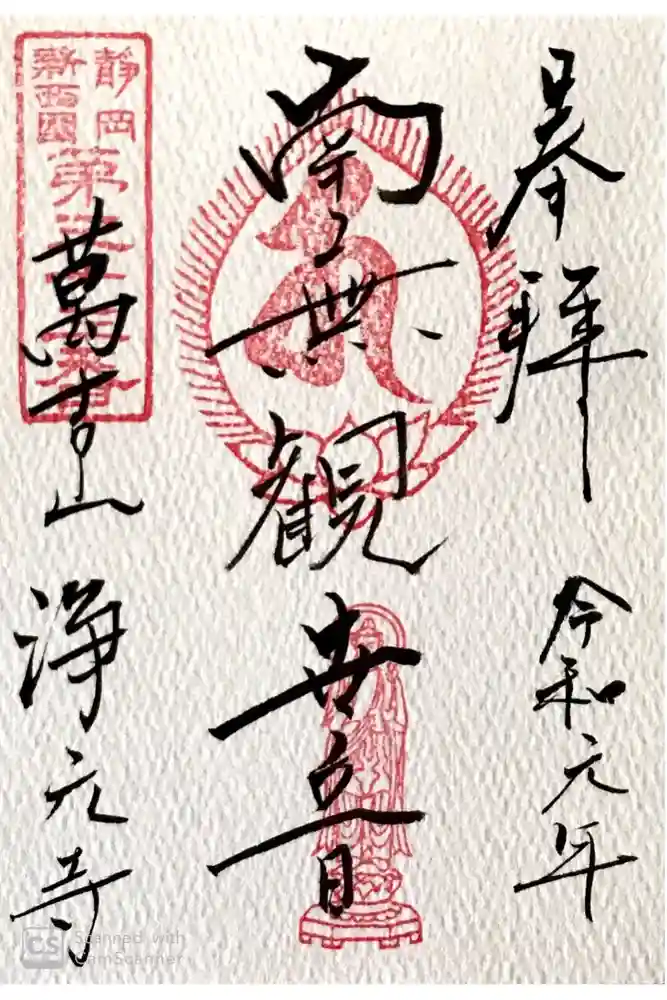 奉拝
令和元年
南無観世音
萬吉山
浄元寺
静岡
新西国
第
番
Scanned with
CamScanner